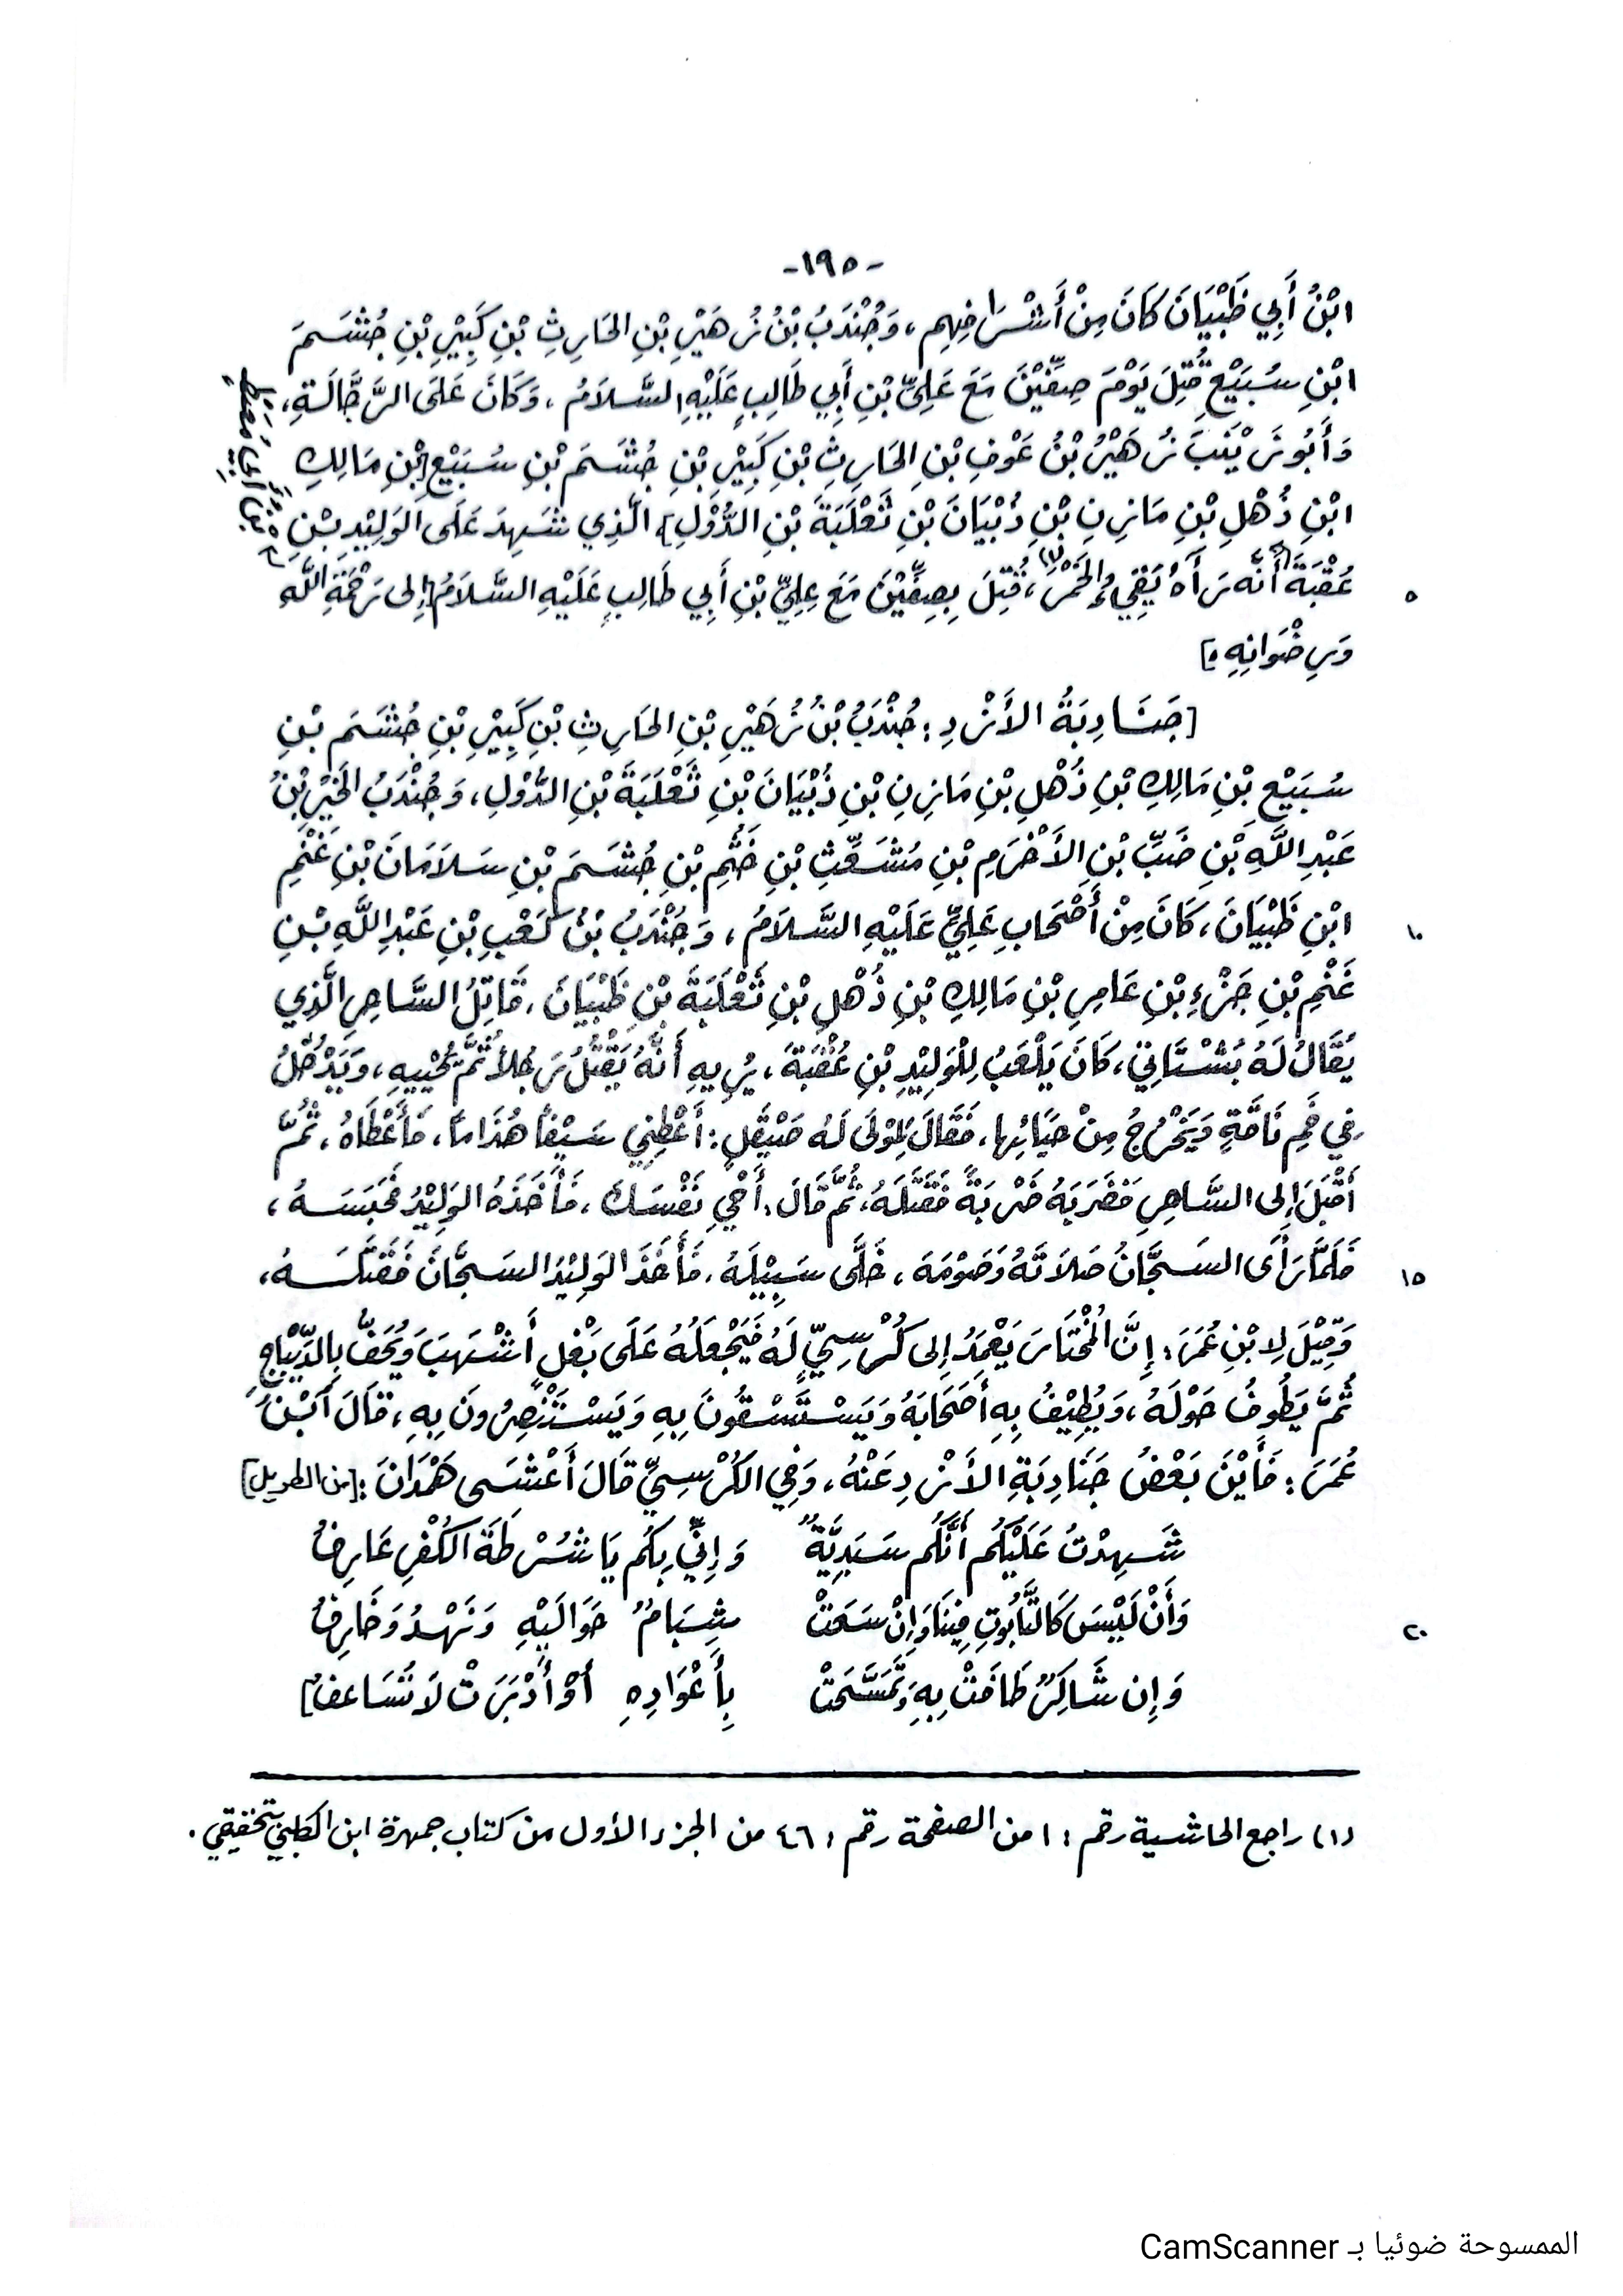 -١٩٥-
ابْنُ أَبِي ظَبْيَانَ كَانَ مِنْ أَشْرَافِهِم، وَجُنْدَبُ بْنُ زُهَيْرِ بْنِ الحَارِثِ بْنِ كَبِيْرِ بْنِ جُشَمَ
ابْنِ سُبَيْعٍ قُتِلَ يَوْمَ صِفِّيْنَ مَعَ عَلِيِّ بْنِ أَبِي طَالِبٍ عَلَيْهِ السَّلَامُ، وَكَانَ عَلَى الرَّجَّالَةِ،
وَأَبُو زَيْنَبَ زُهَيْرُ بْنُ عَوْفِ بْنِ الحَارِثِ بْنِ كَبِيْرِ بْنِ جُشَمَ بْنِ سُبَيْعِ [بْنِ مَالِكِ
ابْنِ ذُهْلِ بْنِ مَازِنِ بْنِ ذُبْيَانَ بْنِ ثَعْلَبَةَ بْنِ الدُّوْلِ] الَّذِي شَهِدَ عَلَى الوَلِيْدِ بْنِ
عُقْبَةَ أَنَّهُ رَآهُ يَقِيءُ الخَمْرَ(١)، قُتِلَ بِصِفِّيْنَ مَعَ عَلِيِّ بْنِ أَبِي طَالِبٍ عَلَيْهِ السَّلَامُ [إِلى رَحْمَةِ اللَّهِ
٥
بْنِ أَبِي مُعَيْطٍ
وَرِضْوَانِهِ.]
[جَنَادِبَةُ الأَزْدِ: جُنْدَبُ بْنُ زُهَيْرِ بْنِ الحَارِثِ بْنِ كَبِيْرِ بْنِ جُشَمَ بْنِ
سُبَيْعِ بْنِ مَالِكِ بْنِ ذُهْلِ بْنِ مَازِنِ بْنِ ذُبْيَانَ بْنِ ثَعْلَبَةَ بْنِ الدُّوْلِ، وَجُنْدَبُ الخَيْرِ بْنُ
عَبْدِ اللَّهِ بْنِ ضَبِّ بْنِ الأَخْرَمِ بْنِ مُشَعِّثِ بْنِ خُثَمِ بْنِ جُشَمَ بْنِ سَلَامَانَ بْنِ غَنْمِ
ابْنِ ظَبْيَانَ، كَانَ مِنْ أَصْحَابِ عَلِيٍّ عَلَيْهِ السَّلَامُ، وَجُنْدَبُ بْنُ كَعْبِ بْنِ عَبْدِ اللَّهِ بْنِ
١٠
غَنْمِ بْنِ جَزْءِ بْنِ عَامِرِ بْنِ مَالِكِ بْنِ ذُهْلِ بْنِ ثَعْلَبَةَ بْنِ ظَبْيَانَ، قَاتِلُ السَّاحِرِ الَّذِي
يُقَالُ لَهُ بُسْتَانِيّ، كَانَ يَلْعَبُ لِلْوَلِيْدِ بْنِ عُقْبَةَ، يُرِيهِ أَنَّهُ يَقْتُلُ رَجُلاً ثُمَّ يُحْيِيهِ، وَيَدْخُلُ
فِي فَمِ نَاقَةٍ وَيَخْرُجُ مِنْ حَيَائِهَا، فَقَالَ لِمَوْلَى لَهُ صَيْقَلٍ: أَعْطِنِي سَيْفاً هُذَاماً، فَأَعْطَاهُ، ثُمَّ
أَقْبَلَ إِلى السَّاحِرِ فَضَرَبَهُ ضَرْبَةً فَقَتَلَهُ، ثُمَّ قَالَ: أَحْيِ نَفْسَكَ، فَأَخَذَهُ الوَلِيْدُ فَحَبَسَهُ،
فَلَمَّا رَأَى السَجَّانُ صَلَاتَهُ وَصَوْمَهُ، خَلَّى سَبِيْلَهُ، فَأَخَذَ الوَلِيْدُ السَجَّانَ فَقَتَلَهُ،
١٥
وَقِيْلَ لِابْنِ عُمَرَ: إِنَّ المُخْتَارَ يَعْمَدُ إِلى كُرْسِيٍّ لَهُ فَيَجْعَلُهُ عَلَى بَغْلٍ أَشْهَبَ وَيُحَفُّ بِالدِّيْبَاجِ
ثُمَّ يَطُوفُ حَوْلَهُ، وَيُطِيْفُ بِهِ أَصْحَابَهُ وَيَسْتَسْقُونَ بِهِ وَيَسْتَنْصِرُونَ بِهِ، قَالَ ابْنُ
عُمَرَ: فَأَيْنَ بَعْضُ جَنَادِبَةِ الأَزْدِ عَنْهُ، وَفِي الكُرْسِيِّ قَالَ أَعْشَى هَمْدَانَ: [من الطويل]
شَهِدْتُ عَلَيْكُم أَنَّكُم سَبَئِيَّةٌ وَإِنِّي بِكُم يَا شُرْطَةَ الكُفْرِ عَارِفُ
وَأَنْ لَيْسَ كَالتَّابُوتِ فِينَا وَإِنْ سَعَتْ شِبَامٌ حَوَالَيْهِ وَنَهْدُ وَخَارِفُ
٢٠
وَإِن شَاكِرٌ طَافَتْ بِهِ وَتَمَسَّحَتْ بِأَعْوَادِهِ أَوْ أَدْبَرَتْ لَا تُسَاعِفُ]
(١) راجع الحاشية رقم: ١ من الصفحة رقم: ٤٦ من الجزء الأول من كتاب جمهرة ابن الكلبي بتحقيقي.
الممسوحة ضوئيا بـ CamScanner